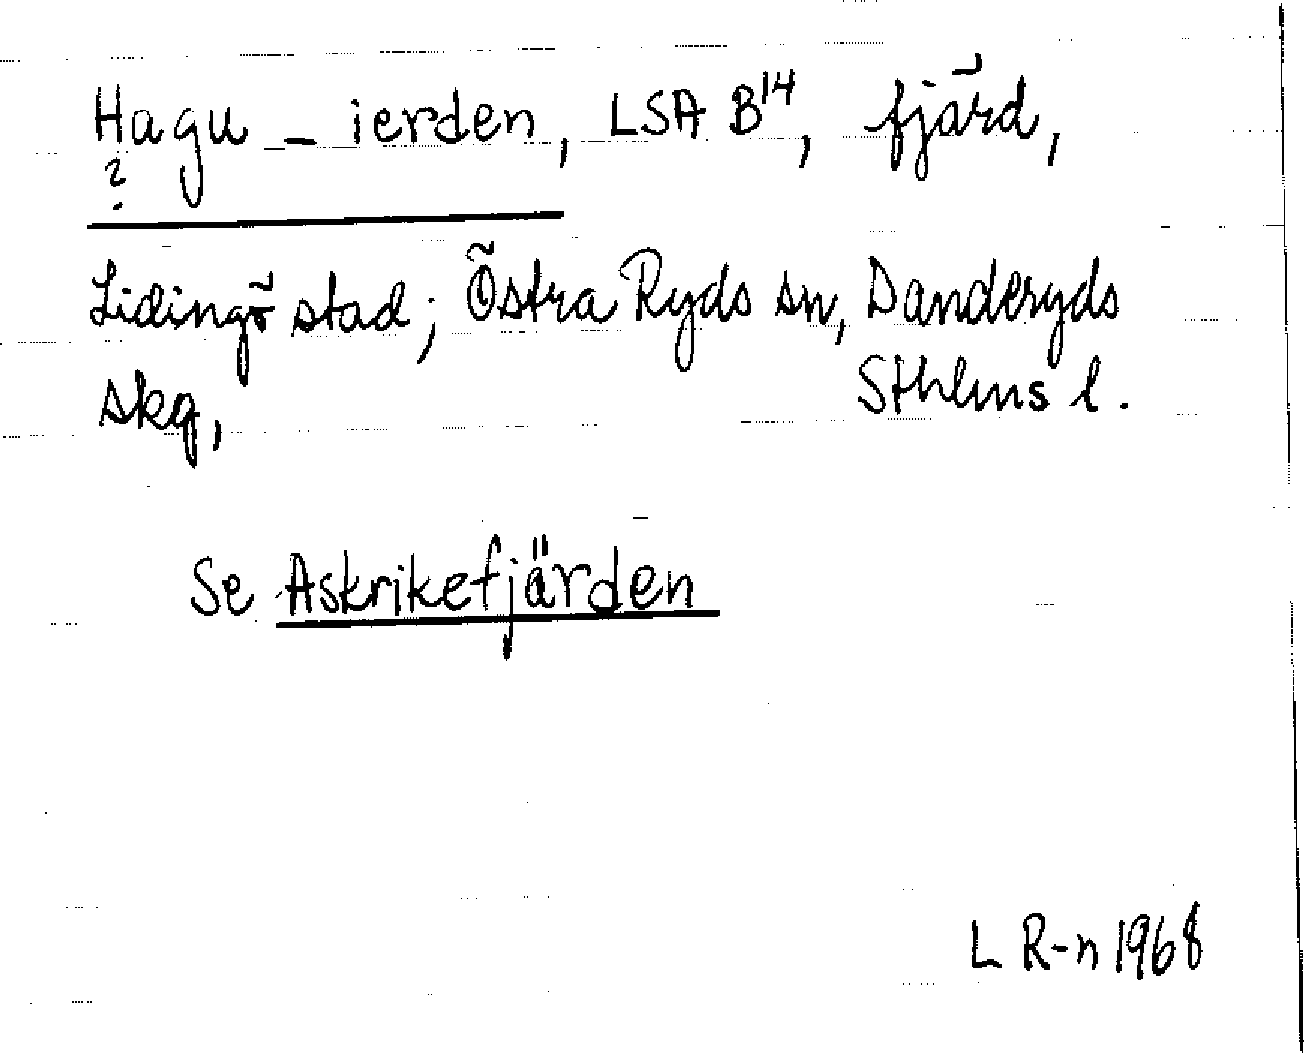 Hagu - ierden, LSA B¹⁴, fjärd,
?
Lidingö stad; Östra Ryds sn, Danderyds
skg, Sthlms l.
Se Askrikefjärden
L R-n 1968